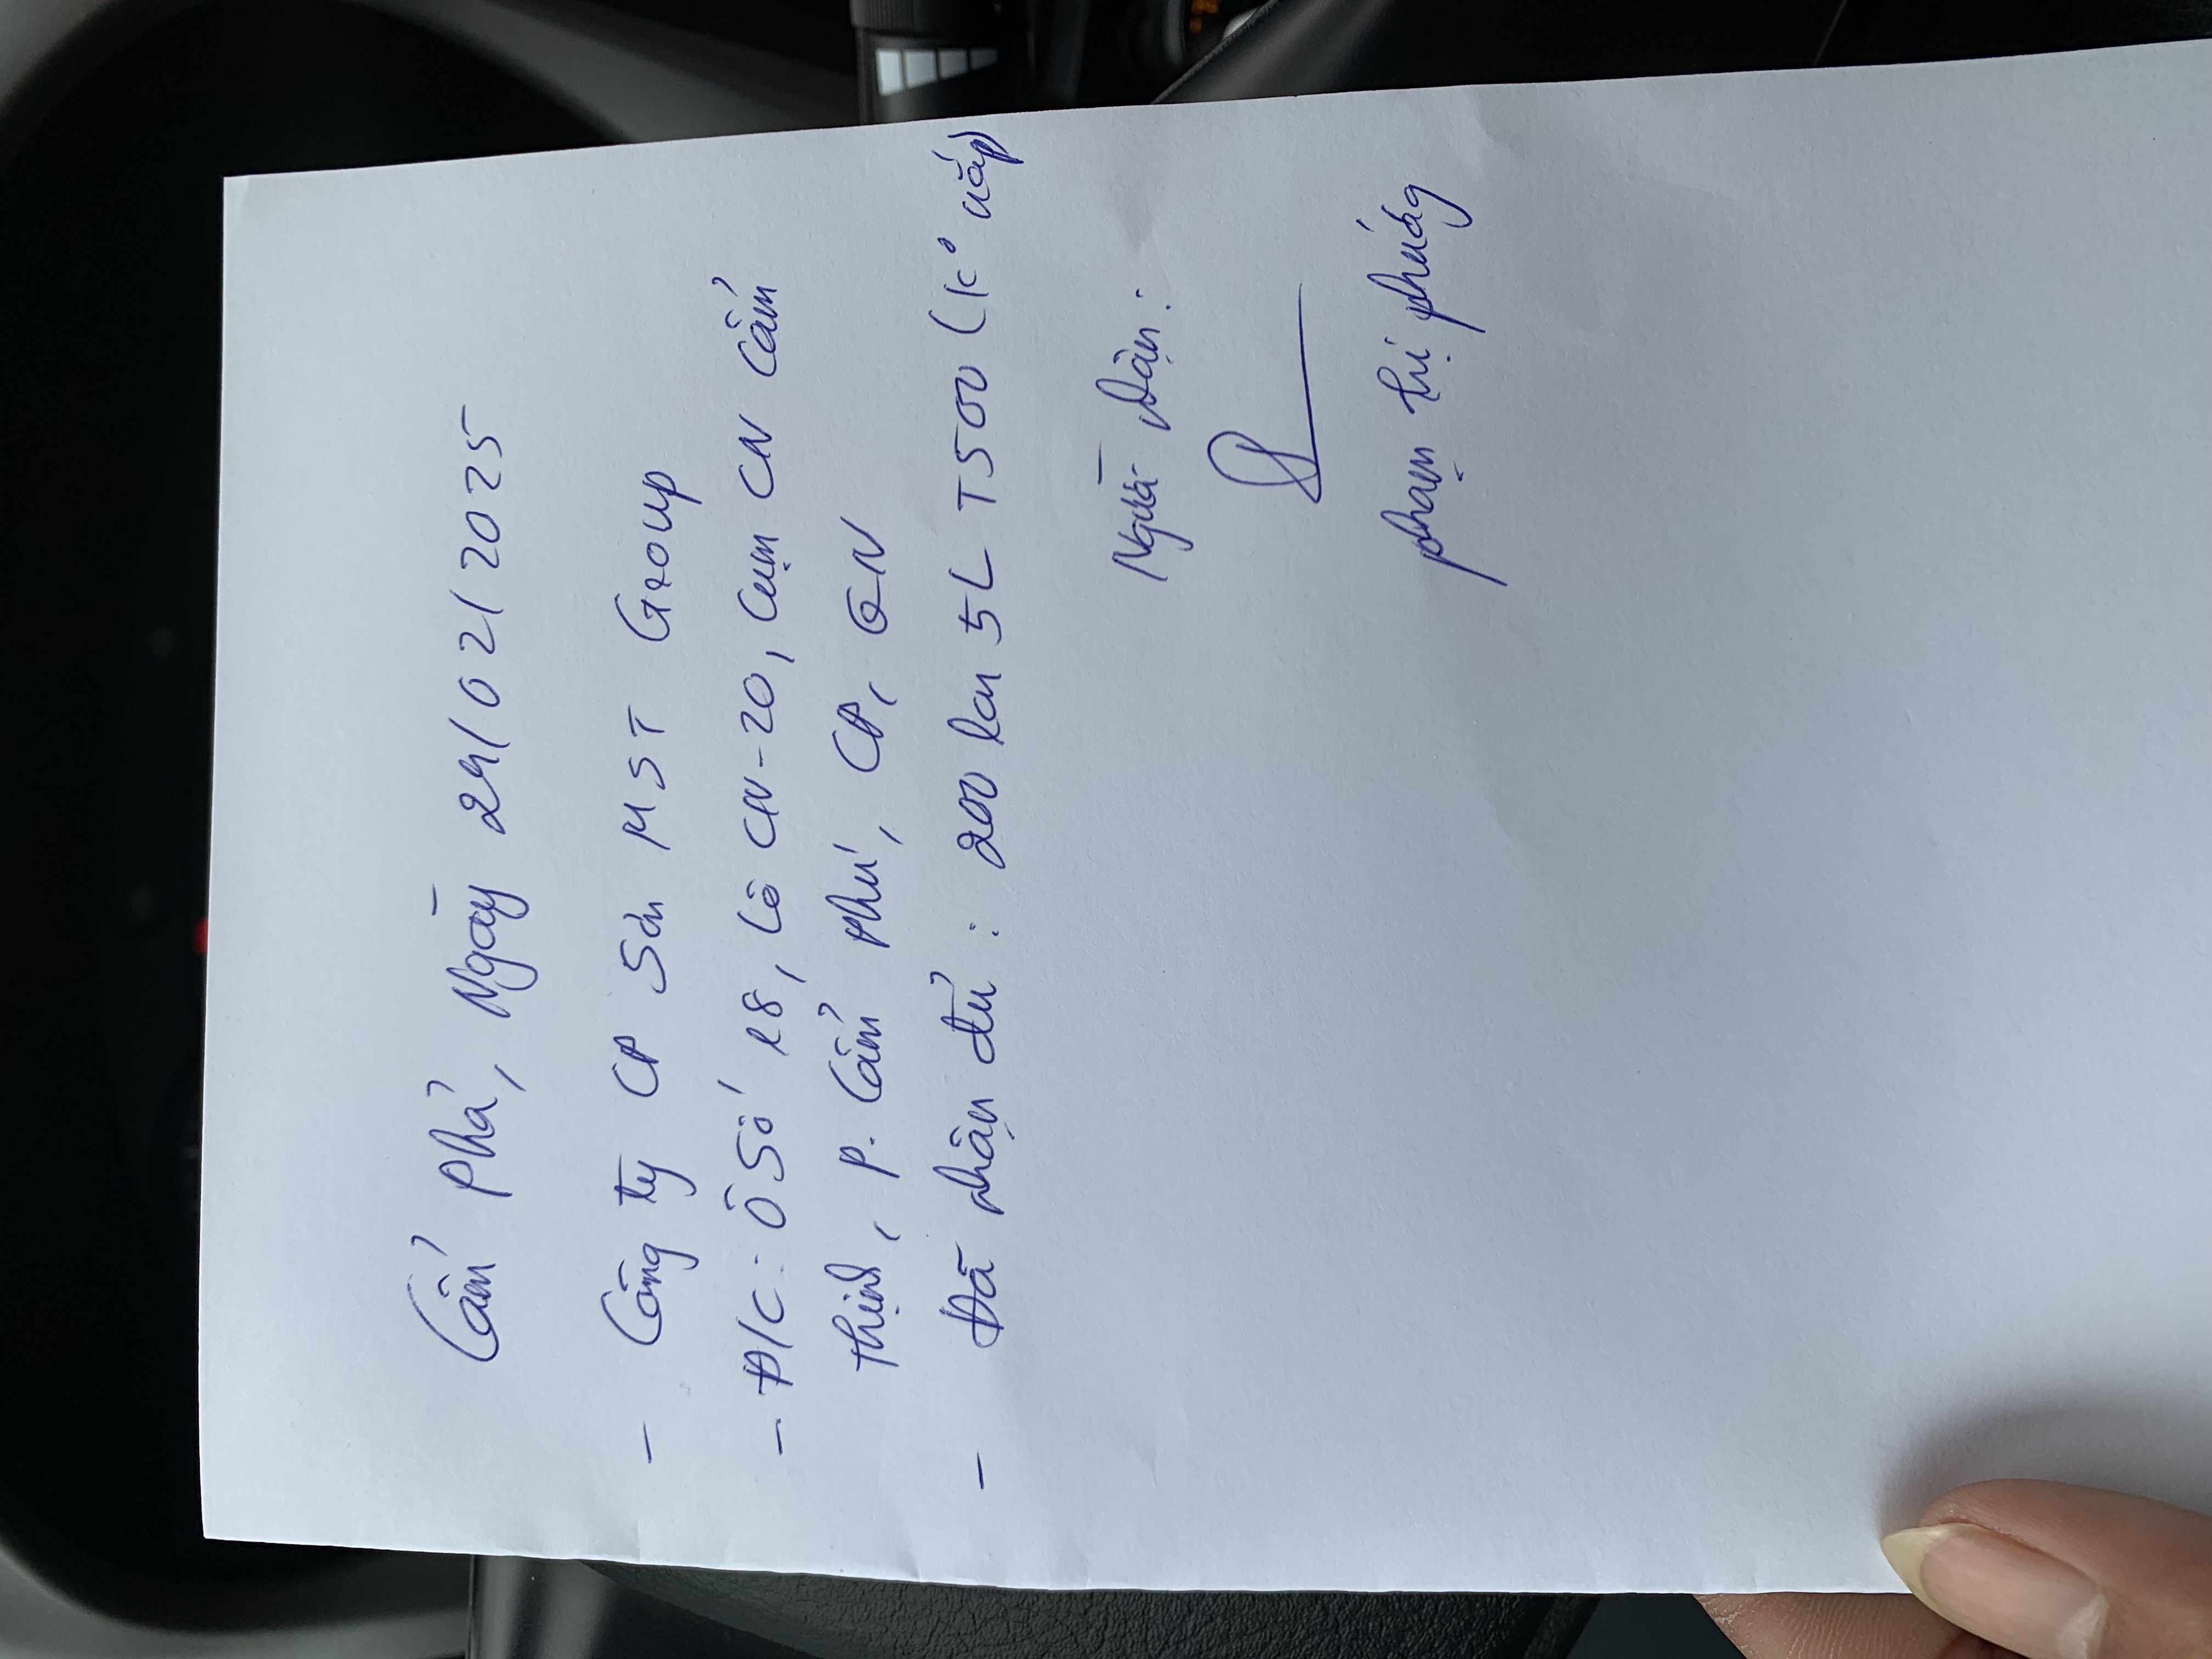 Cẩm Phả, Ngày 24/02/2025
- Công ty CP Sơn MST Group
- Đ/C: Ô Số 18, Lô CN-20, Cụm CN Cẩm
Thịnh, P. Cẩm Phú, CP, QN
- Đã nhận đủ: 200 lon 5L T500 (K° nắp)
Người nhận:
phạm thị phương